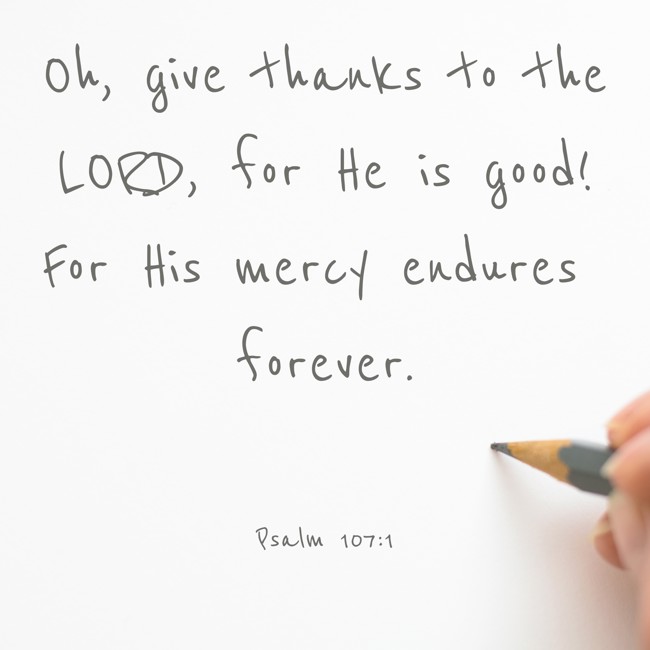 Oh, give thanks to the
LORD, for He is good!
For His mercy endures
forever.
Psalm 107:1